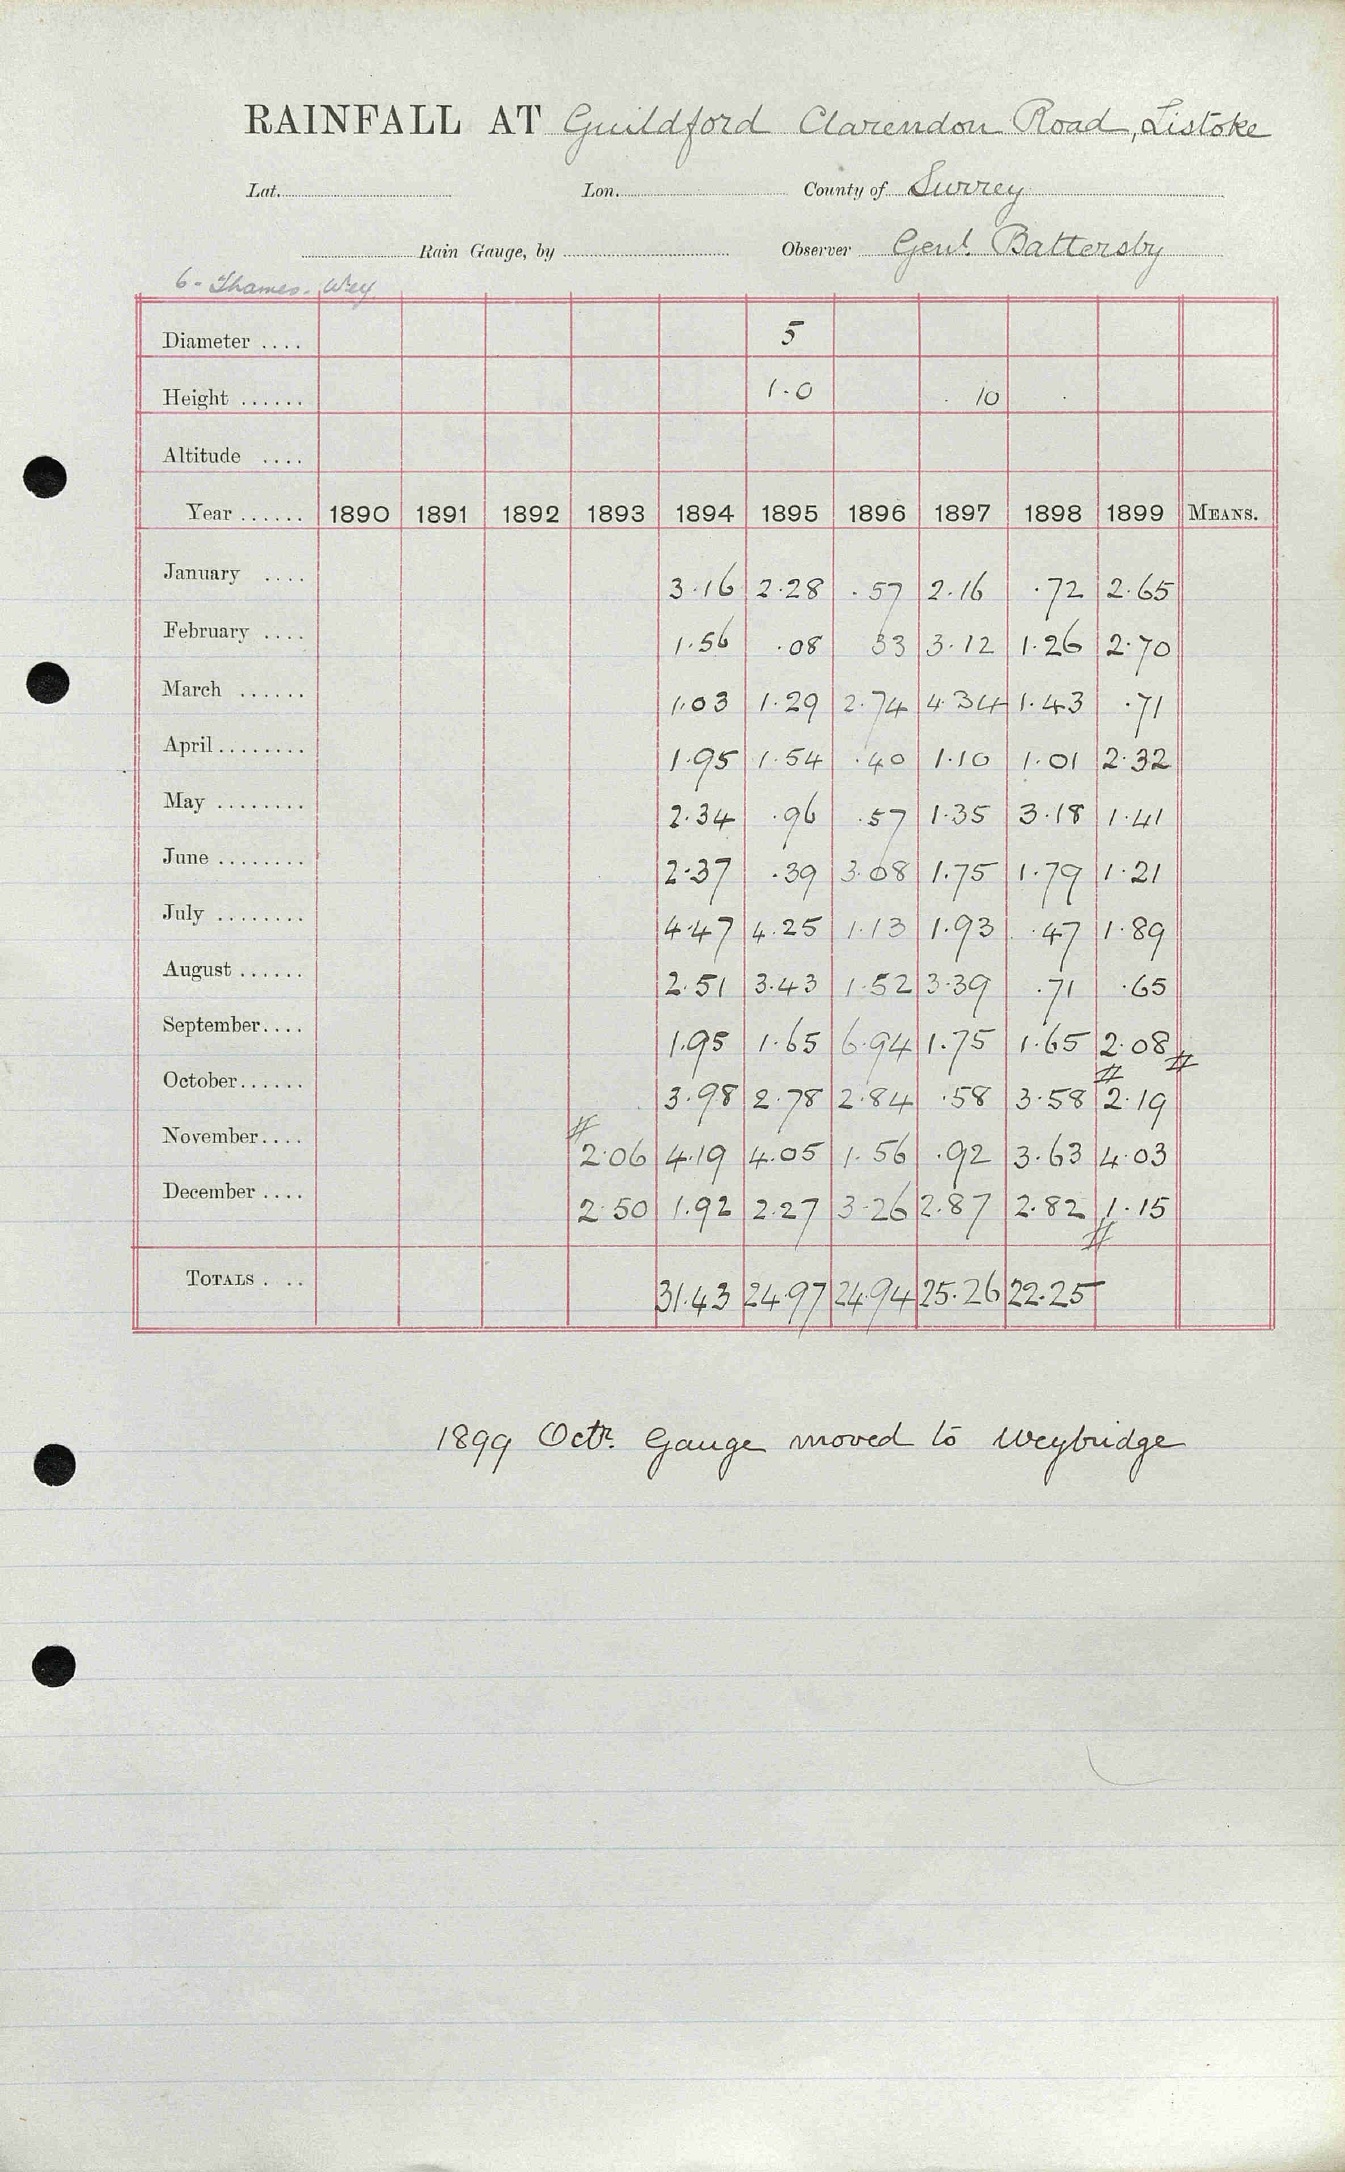 RAINFALL AT Guildford Clarendon Road, Listoke
Lat. Lon. County of Surrey
Rain Gauge, by Observer Genl. Battersby
6 - Thames - Wey
Diameter .... 5
Height ...... 1.0 10
Altitude ....
Year ...... 1890 1891 1892 1893 1894 1895 1896 1897 1898 1899 MEANS.
January .... 3.16 2.28 .57 2.16 .72 2.65
February .... 1.56 .08 33 3.12 1.26 2.70
March ...... 1.03 1.29 2.74 4.34 1.43 .71
April ........ 1.95 1.54 .40 1.10 1.01 2.32
May ........ 2.34 .96 .57 1.35 3.18 1.41
June ........ 2.37 .39 3.08 1.75 1.79 1.21
July ........ 4.47 4.25 1.13 1.93 .47 1.89
August ...... 2.51 3.43 1.52 3.39 .71 .65
September.... 1.95 1.65 6.94 1.75 1.65 2.08 #
October...... 3.98 2.78 2.84 .58 3.58 # 2.19
November.... # 2.06 4.19 4.05 1.56 .92 3.63 4.03
December .... 2.50 1.92 2.27 3.26 2.87 2.82 1.15 #
TOTALS . .. 31.43 24.97 24.94 25.26 22.25
1899 Octr. Gauge moved to Weybridge